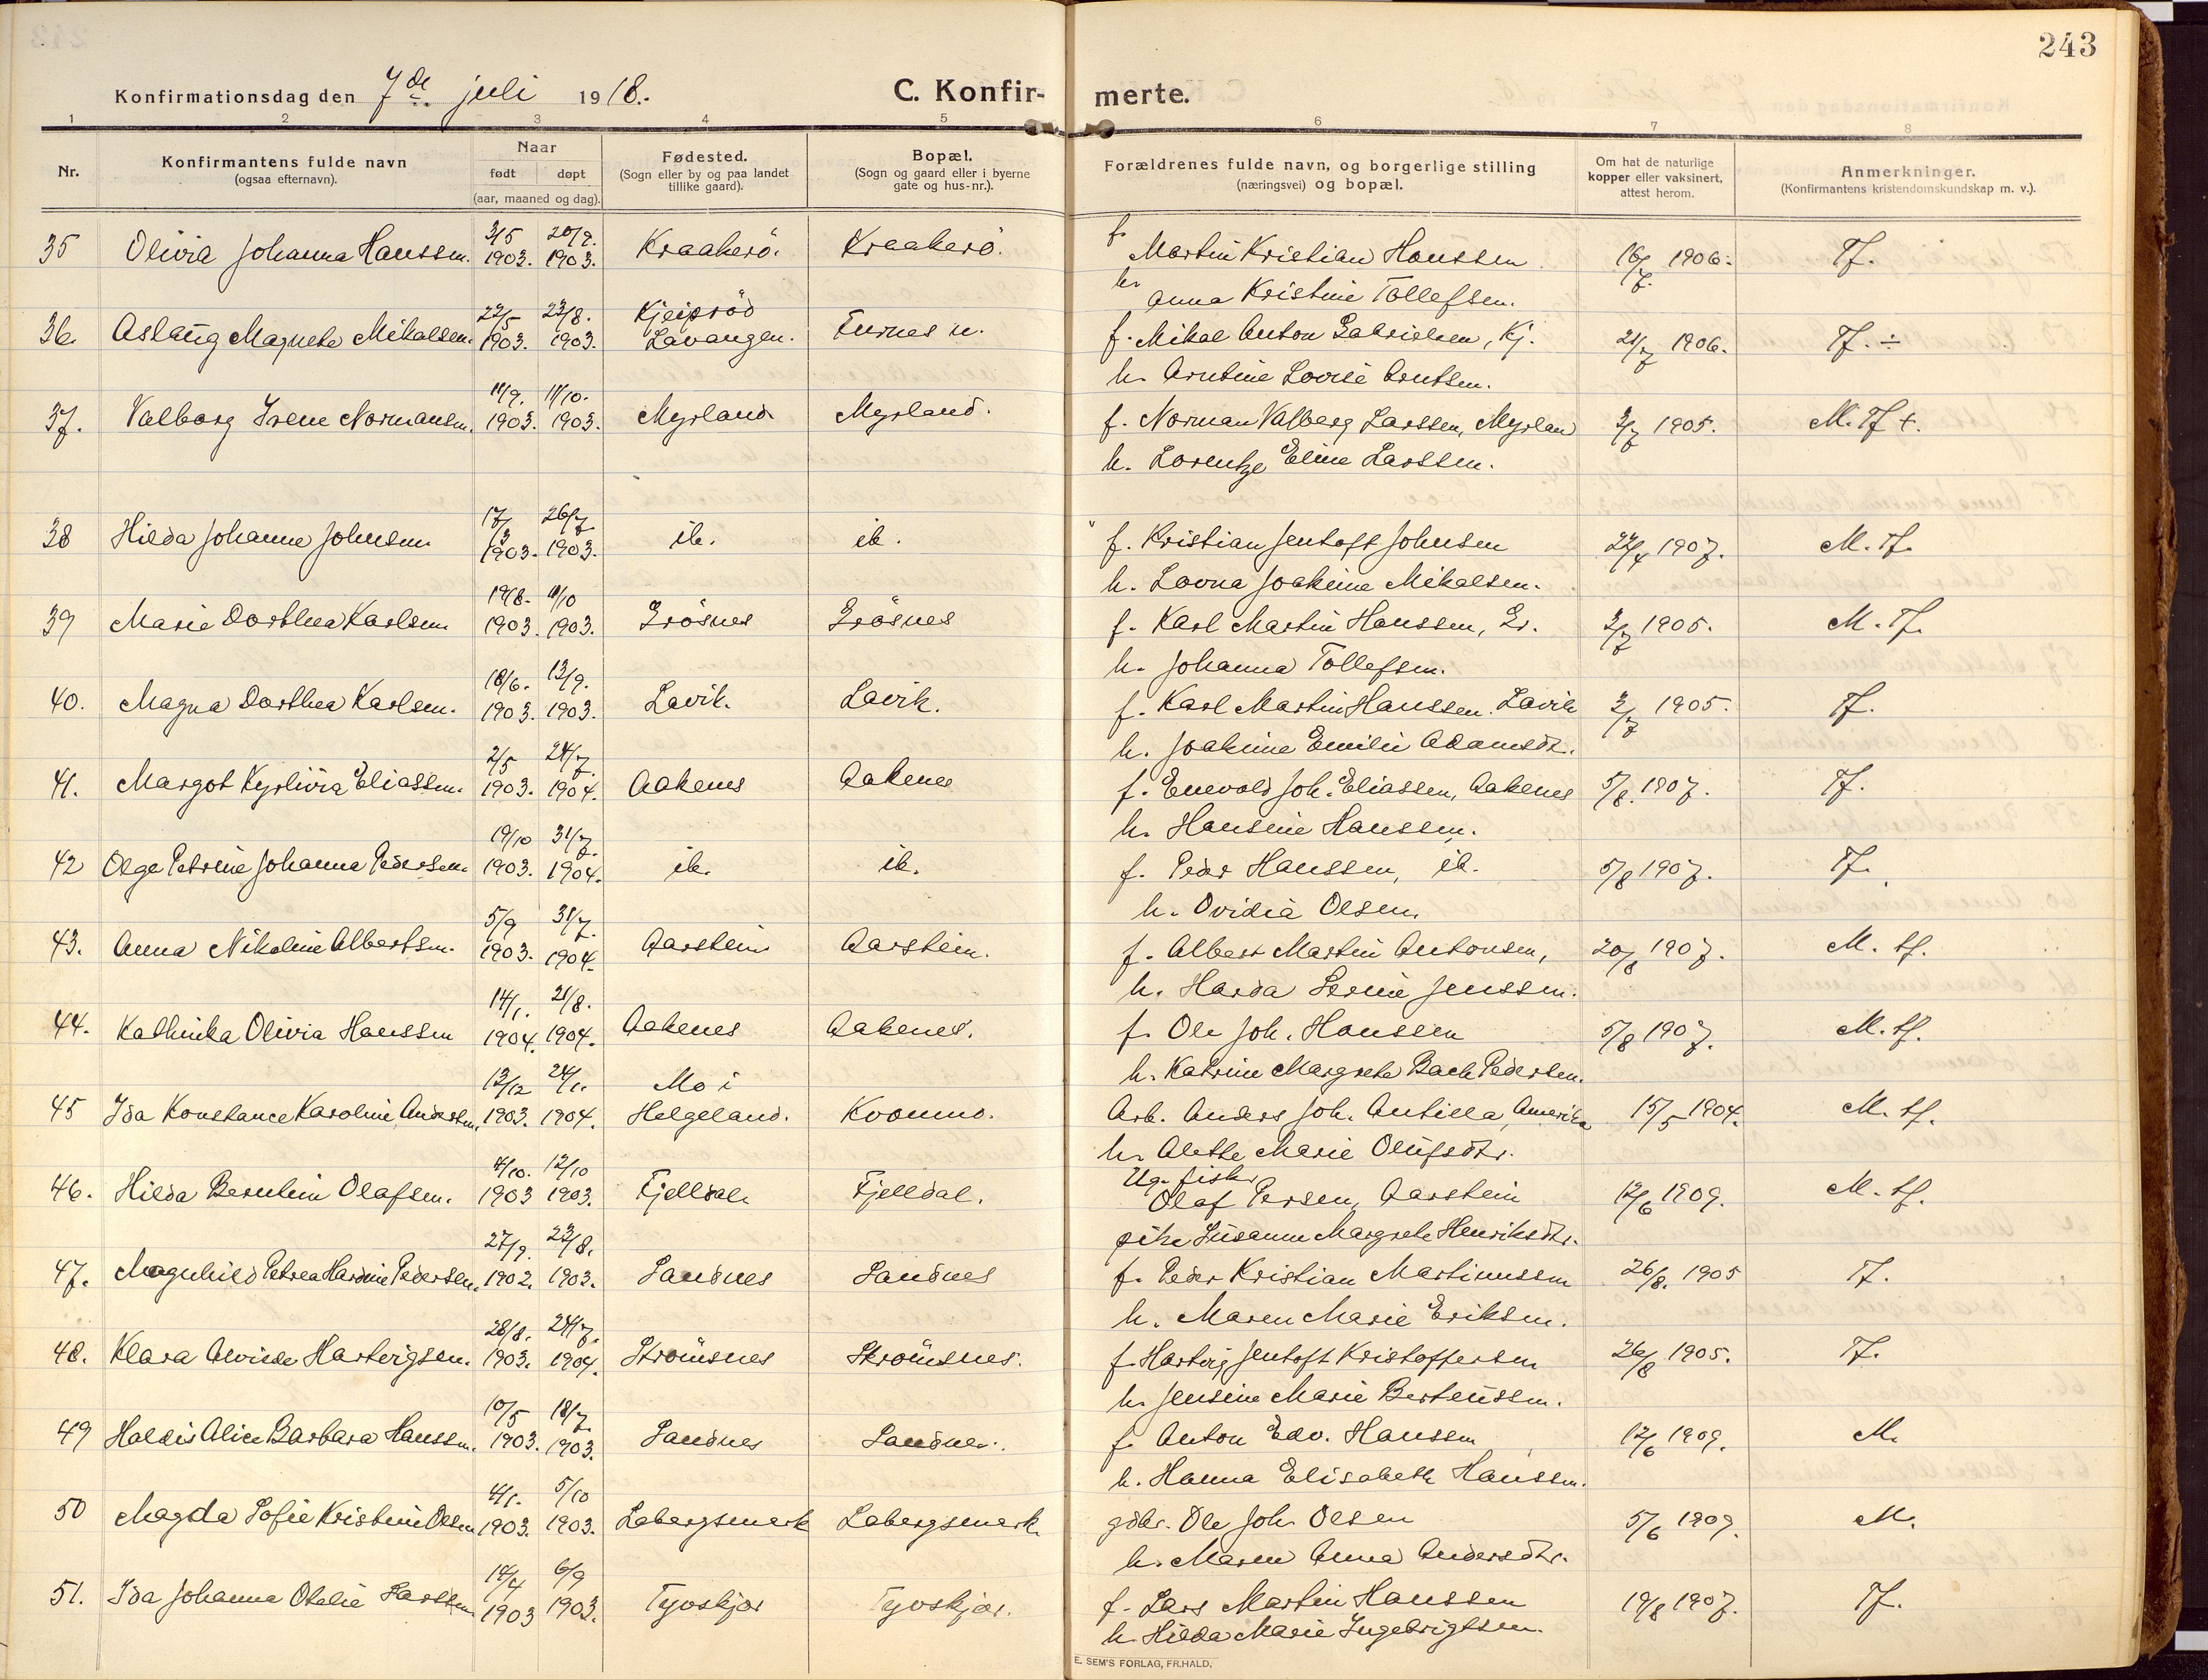 243
Konfirmationsdag den 7de juli 1918.
C. Konfir- merte.
1 2 3 4 5 6 7 8
Nr.
Konfirmantens fulde navn
(ogsaa efternavn).
Naar
født døpt
(aar, maaned og dag).
Fødested.
(Sogn eller by og paa landet
tillike gaard).
Bopæl.
(Sogn og gaard eller i byerne
gate og hus-nr.).
Forældrenes fulde navn, og borgerlige stilling
(næringsvei) og bopæl.
Om hat de naturlige
kopper eller vaksinert,
attest herom.
Anmerkninger.
(Konfirmantens kristendomskundskap m. v.).
35 Olivia Johanna Hanssen. 3/5 1903. 20/9. 1903. Kraakerö. Kraakerö. f. Martin Kristian Hanssen 16/7 1906. Tf.
h. Anna Kristine Tollefsen.
36. Aslaug Magnete Mikalsen. 22/5 1903. 23/8. 1903. Kjeipröd Lavangen. Furnes n. f. Mikal Anton Gabrielsen, Kj. 21/7 1906. Tf. ÷
h. Arntine Lovise Arntsen.
37. Valborg Irene Normansen. 11/9. 1903. 11/10. 1903. Myrland Myrland. f. Norman Valberg Larssen, Myrlan 3/7 1905. M. Tf +.
h. Lorentze Eline Larssen.
38 Hilda Johanne Johnsen. 17/3 1903. 26/7. 1903. ib. ib. f. Kristian Jentoft Johnsen 22/4 1907. M. Tf.
h. Lovna Joakima Mikalsen.
39 Marie Dorthea Karlsen 19/8. 1903. 11/10 1903. Grösnes Grösnes f. Karl Martin Hanssen, Gr. 3/7 1905. M. Tf.
h. Johanna Tollefsen.
40. Magna Dorthea Karlsen. 18/6. 1903. 13/9. 1903. Lavik. Lavik. f. Karl Martin Hanssen. Lavik 3/7 1905. Tf.
h. Joakime Emilie Adamsdt.
41. Margot Kyrlivia Eliassen. 2/5 1903. 24/7. 1904. Aakenes Aakenes f. Enevold Joh. Eliassen, Aakenes 5/8. 1907. Tf.
h. Hansine Hanssen.
42 Olga Petrine Johanna Pedersen. 19/10 1903. 31/7. 1904. ib. ib. f. Peder Hanssen, ib. 5/8 1907. Tf.
h. Ovidia Olsen.
43. Anna Nikoline Albertsen. 5/9 1903. 31/7. 1904. Aarstein Aarstein. f. Albert Martin Antonsen, 20/8 1907. M. tf.
h. Harda Serine Jenssen.
44. Kathinka Olivia Hanssen 14/1. 1904. 21/8. 1904. Aakenes Aakenes. f. Ole Joh. Hanssen 5/8 1907. M. tf.
h. Katrine Margrete Bach Pedersen.
45 Ida Konstance Karoline Anderssen. 13/12 1903. 24/1. 1904. Mo i Helgeland. Kvommo. Arb. Anders Joh. Antilla, Amerika 15/5 1904. M. tf.
h. Alette Marie Olufsdtr.
46. Hilda Berntine Olafsen. 4/10. 1903 12/10 1903. Fjelldal. Fjelldal. Ug. fisker Olaf Persen, Aarstein 12/6 1909. M. tf.
pike Susanne Margrete Henriksdtr.
47. Magnhild Petrea Hardine Pedersen. 27/9. 1902. 23/8. 1903. Sandnes Sandnes f. Peder Kristian Martinussen 26/8. 1905 Tf.
h. Maren Marie Eriksen.
48. Klara Alvilde Hartvigsen. 28/8. 1903. 24/7. 1904. Strömsnes Strömsnes. f. Hartvig Jentoft Kristoffersen 26/8 1905. Tf.
h. Jensine Marie Berteussen.
49 Haldis Alice Barbara Hanssen. 10/5 1903. 18/7 1903. Sandnes Sandnes. f. Anton Edv. Hanssen 12/6 1909. M.
h. Hanna Elisabeth Hanssen.
50 Magda Sofie Kristine Olsen 4/1. 1903. 5/10 1903. Labergsmark Labergsmark. gdbr. Ole Joh Olsen 5/6 1909. M.
h. Maren Anna Andersdtr.
51. Ida Johanna Otelie Larssen 14/4 1903 6/9 1903. Tyvskjær Tyvskjær. f. Lars Martin Hanssen 19/8 1907. Tf.
h. Hilda Marie Ingebrigtsen.
E. SEM'S FORLAG, FR.HALD.